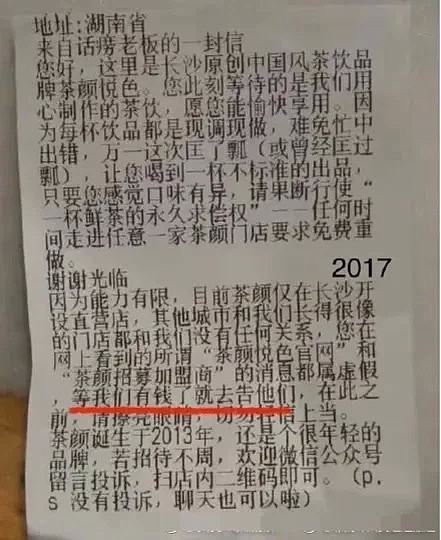 地址:湖南省
来自话痨老板的一封信
您好，这里是长沙原创中国风茶饮品
牌茶颜悦色。您此刻等待的是我们用
心制作的茶饮，愿您能愉快享用。因
为每杯饮品都是现调现做，难免忙中
出错，万一这次匡了瓢(或曾经匡过
瓢)，让您喝到一杯不标准的出品，
只要您感觉口味有异，请果断行使“
一杯鲜茶的永久求偿权”——任何时
间走进任意一家茶颜门店要求免费重
做。
2017
谢谢光临
因为能力有限，目前茶颜仅在长沙开
设直营店，其他城市和任何长得很像
的门店都和我们没有关系，您在
网上看到的所谓“茶颜悦色官网”和
“茶颜招募加盟商”的消息都属虚假
等我们有钱了就去告他们，在此之
前，请擦亮眼睛，切勿轻信上当。
茶颜诞生于2013年，还是个很年轻的
品牌，若招待不周，欢迎微信公众号
留言投诉，扫店内二维码即可。(p.
s 没有投诉，聊天也可以啦)